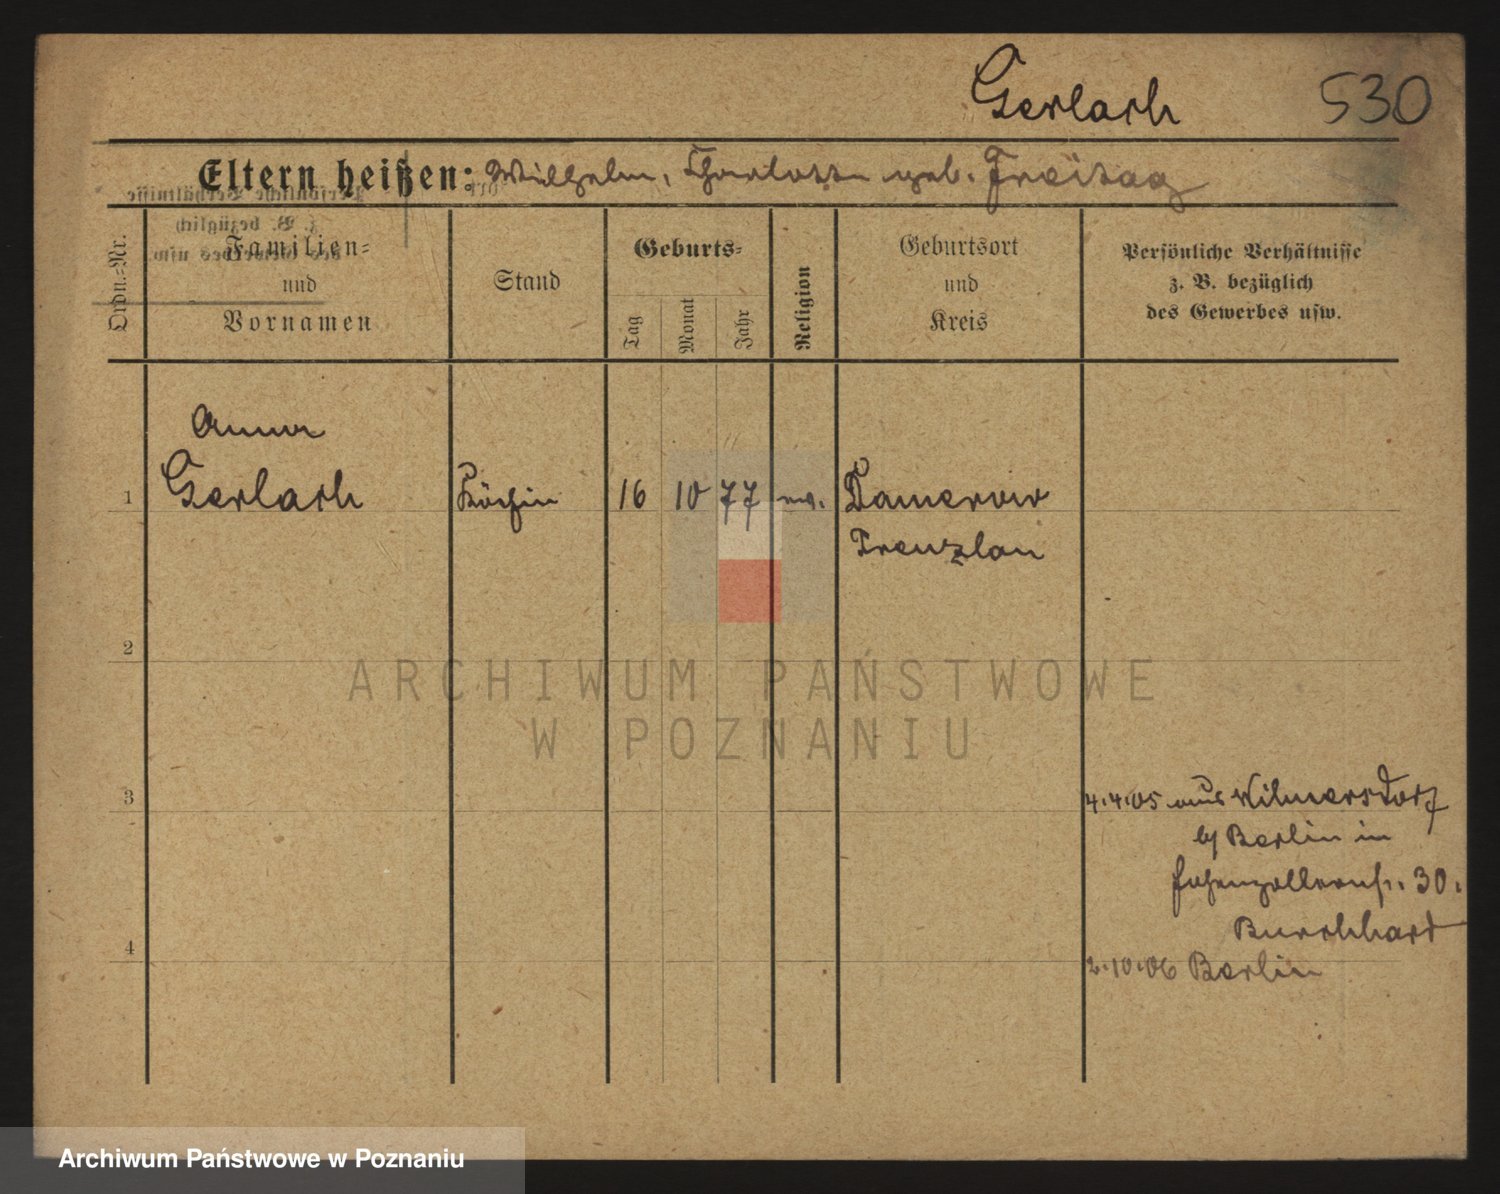 Gerlach 530
Eltern heißen: Wilhelm, Charlotte geb. Freitag
Ordn.=Nr.
Familien=
und
Vornamen
Stand
Geburts=
Tag
Monat
Jahr
Religion
Geburtsort
und
Kreis
Persönliche Verhältnisse
z. B. bezüglich
des Gewerbes usw.
Anna
1 Gerlach Köchin 16 10 77 ev. Damerow
Prenzlau
2
3
4.4.05 aus Wilmersdorf
b/ Berlin in
Hohenzollernstr. 30.
Burchhard
4
2.10.06 Berlin
ARCHIWUM PAŃSTWOWE
W POZNANIU
Archiwum Państwowe w Poznaniu